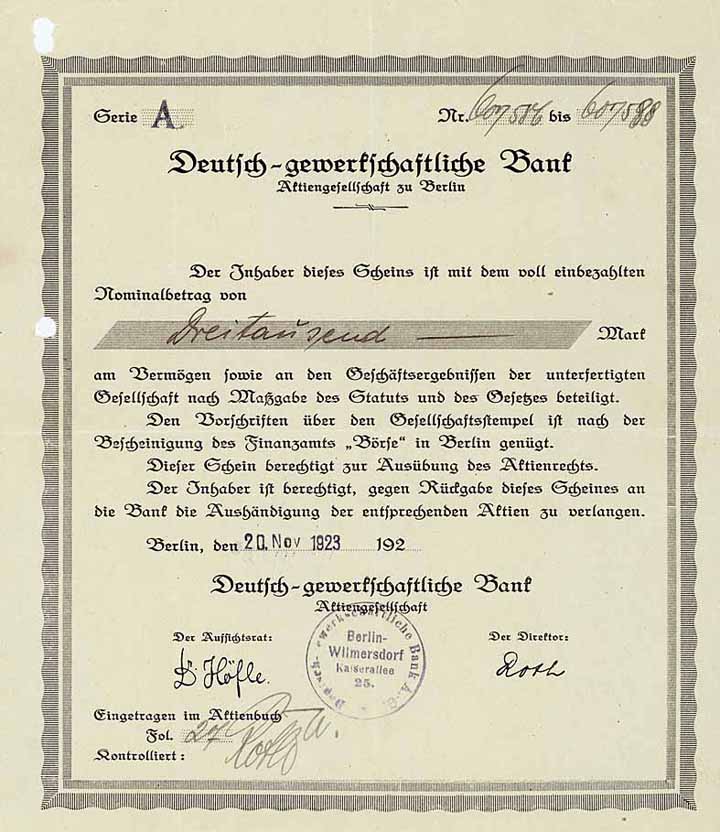 Serie A Nr. 607586 bis 607588
Deutsch-gewerkschaftliche Bank
Aktiengesellschaft zu Berlin
Der Inhaber dieses Scheins ist mit dem voll einbezahlten
Nominalbetrag von
Dreitausend Mark
am Vermögen sowie an den Geschäftsergebnissen der unterfertigten
Gesellschaft nach Maßgabe des Statuts und des Gesetzes beteiligt.
Den Vorschriften über den Gesellschaftsstempel ist nach der
Bescheinigung des Finanzamts „Börse“ in Berlin genügt.
Dieser Schein berechtigt zur Ausübung des Aktienrechts.
Der Inhaber ist berechtigt, gegen Rückgabe dieses Scheines an
die Bank die Aushändigung der entsprechenden Aktien zu verlangen.
Berlin, den 20. Nov 1923 192
Deutsch-gewerkschaftliche Bank
Aktiengesellschaft
Der Aufsichtsrat: Der Direktor:
Dr Höfle. Roth
Deutsch-gewerkschaftliche Bank A.-G.
Berlin-
Wilmersdorf
Kaiserallee
25.
Eingetragen im Aktienbuch
Fol.
Kontrolliert: